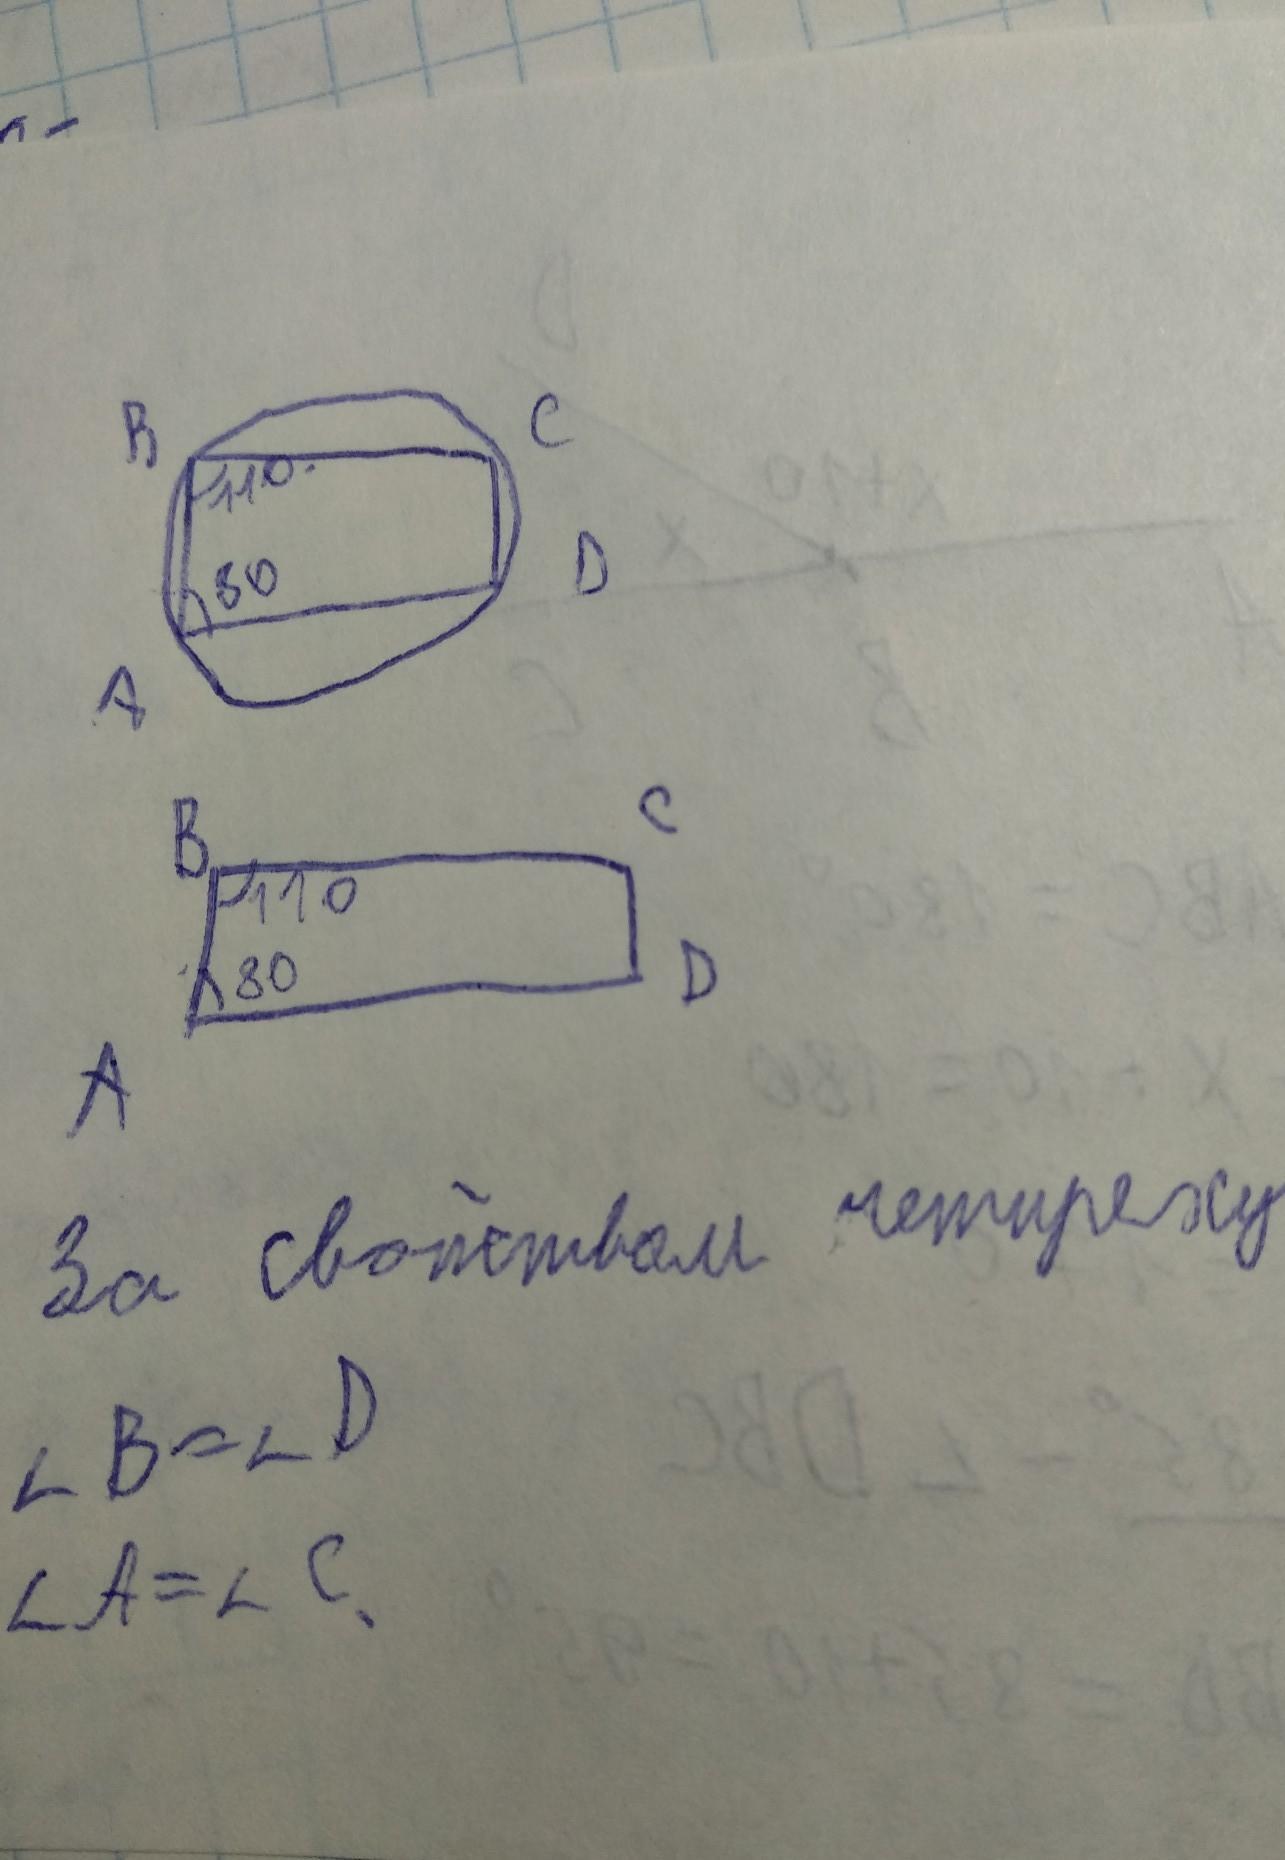 B
C
110.
80
D
A
B
C
110
80
D
A
За свойством четиреху
∠B=∠D
∠A=∠C.